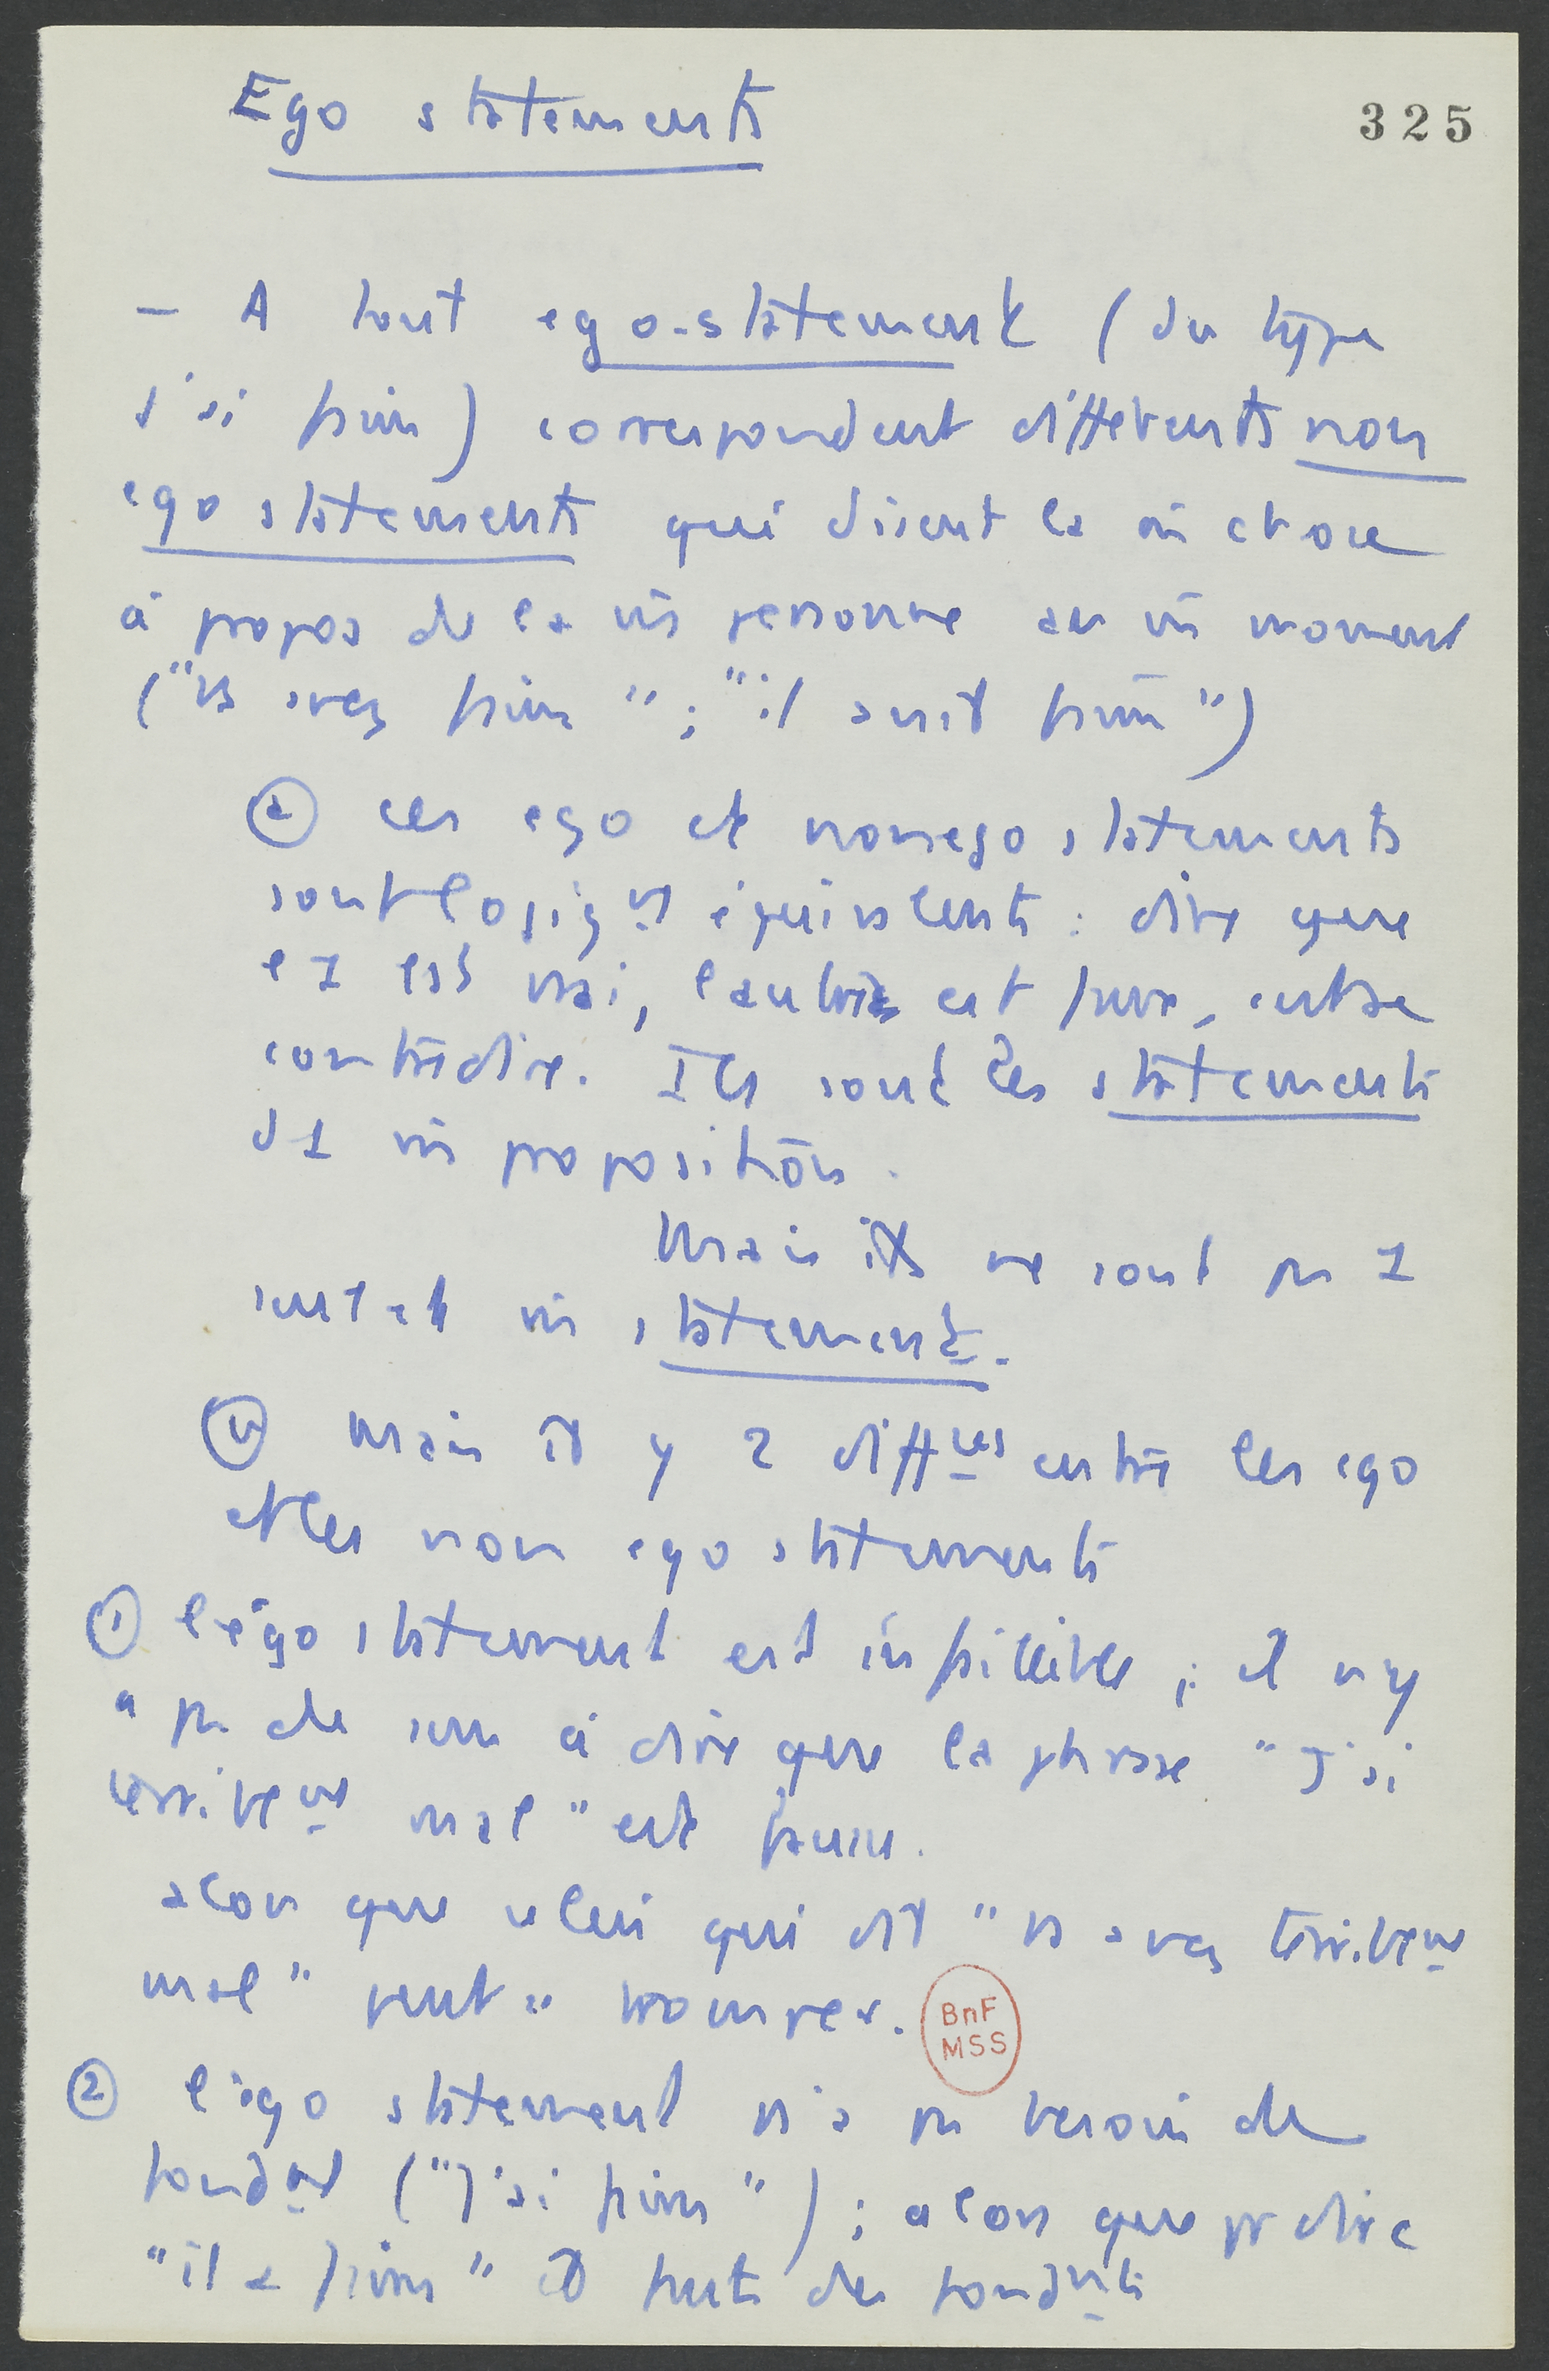 Ego statements
325
– A tout ego-statement (du type
j'ai faim) correspondent différents non
ego statements qui disent la m̄ chose
à propos de la m̄ personne au m̄ moment
("vs avez faim" ; "il avait faim")
ⓐ ces ego et non ego statements
sont logiqt équivalents : dire que
l'1 est vrai, l'autre est faux, c'est se
contredire. Ils sont les statements
d'1 m̄ proposition.
Mais ils ne sont pas 1
seul et m̄ statement.
ⓑ Mais il y a 2 diffces entre les ego
et les non ego statements
① l'ego statement est infaillible ; il n'y
a pas de sens à dire que la phrase "J'ai
terriblemt mal" est fausse.
alors que celui qui dit "vs avez terriblemt
mal" peut se tromper.
BnF
MSS
② l'ego statement n'a pas besoin de
fondemt ("J'ai faim") ; alors que pr dire
"il a faim" il faut des fondemts